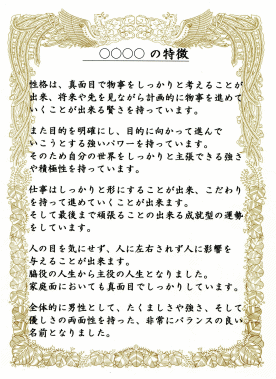 ○○○○ の特徴
性格は、真面目で物事をしっかりと考えることが
出来、将来や先を見ながら計画的に物事を進めて
いくことが出来る賢さを持っています。
また目的を明確にし、目的に向かって進んで
いこうとする強いパワーを持っています。
そのため自分の世界をしっかりと主張できる強さ
や積極性を持っています。
仕事はしっかりと形にすることが出来、こだわり
を持って進めていくことが出来ます。
そして最後まで頑張ることの出来る成就型の運勢
をしています。
人の目を気にせず、人に左右されず人に影響を
与えることが出来ます。
脇役の人生から主役の人生となりました。
家庭面においても真面目でしっかりしています。
全体的に男性として、たくましさや強さ、そして
優しさの両面性を持った、非常にバランスの良い
名前となりました。